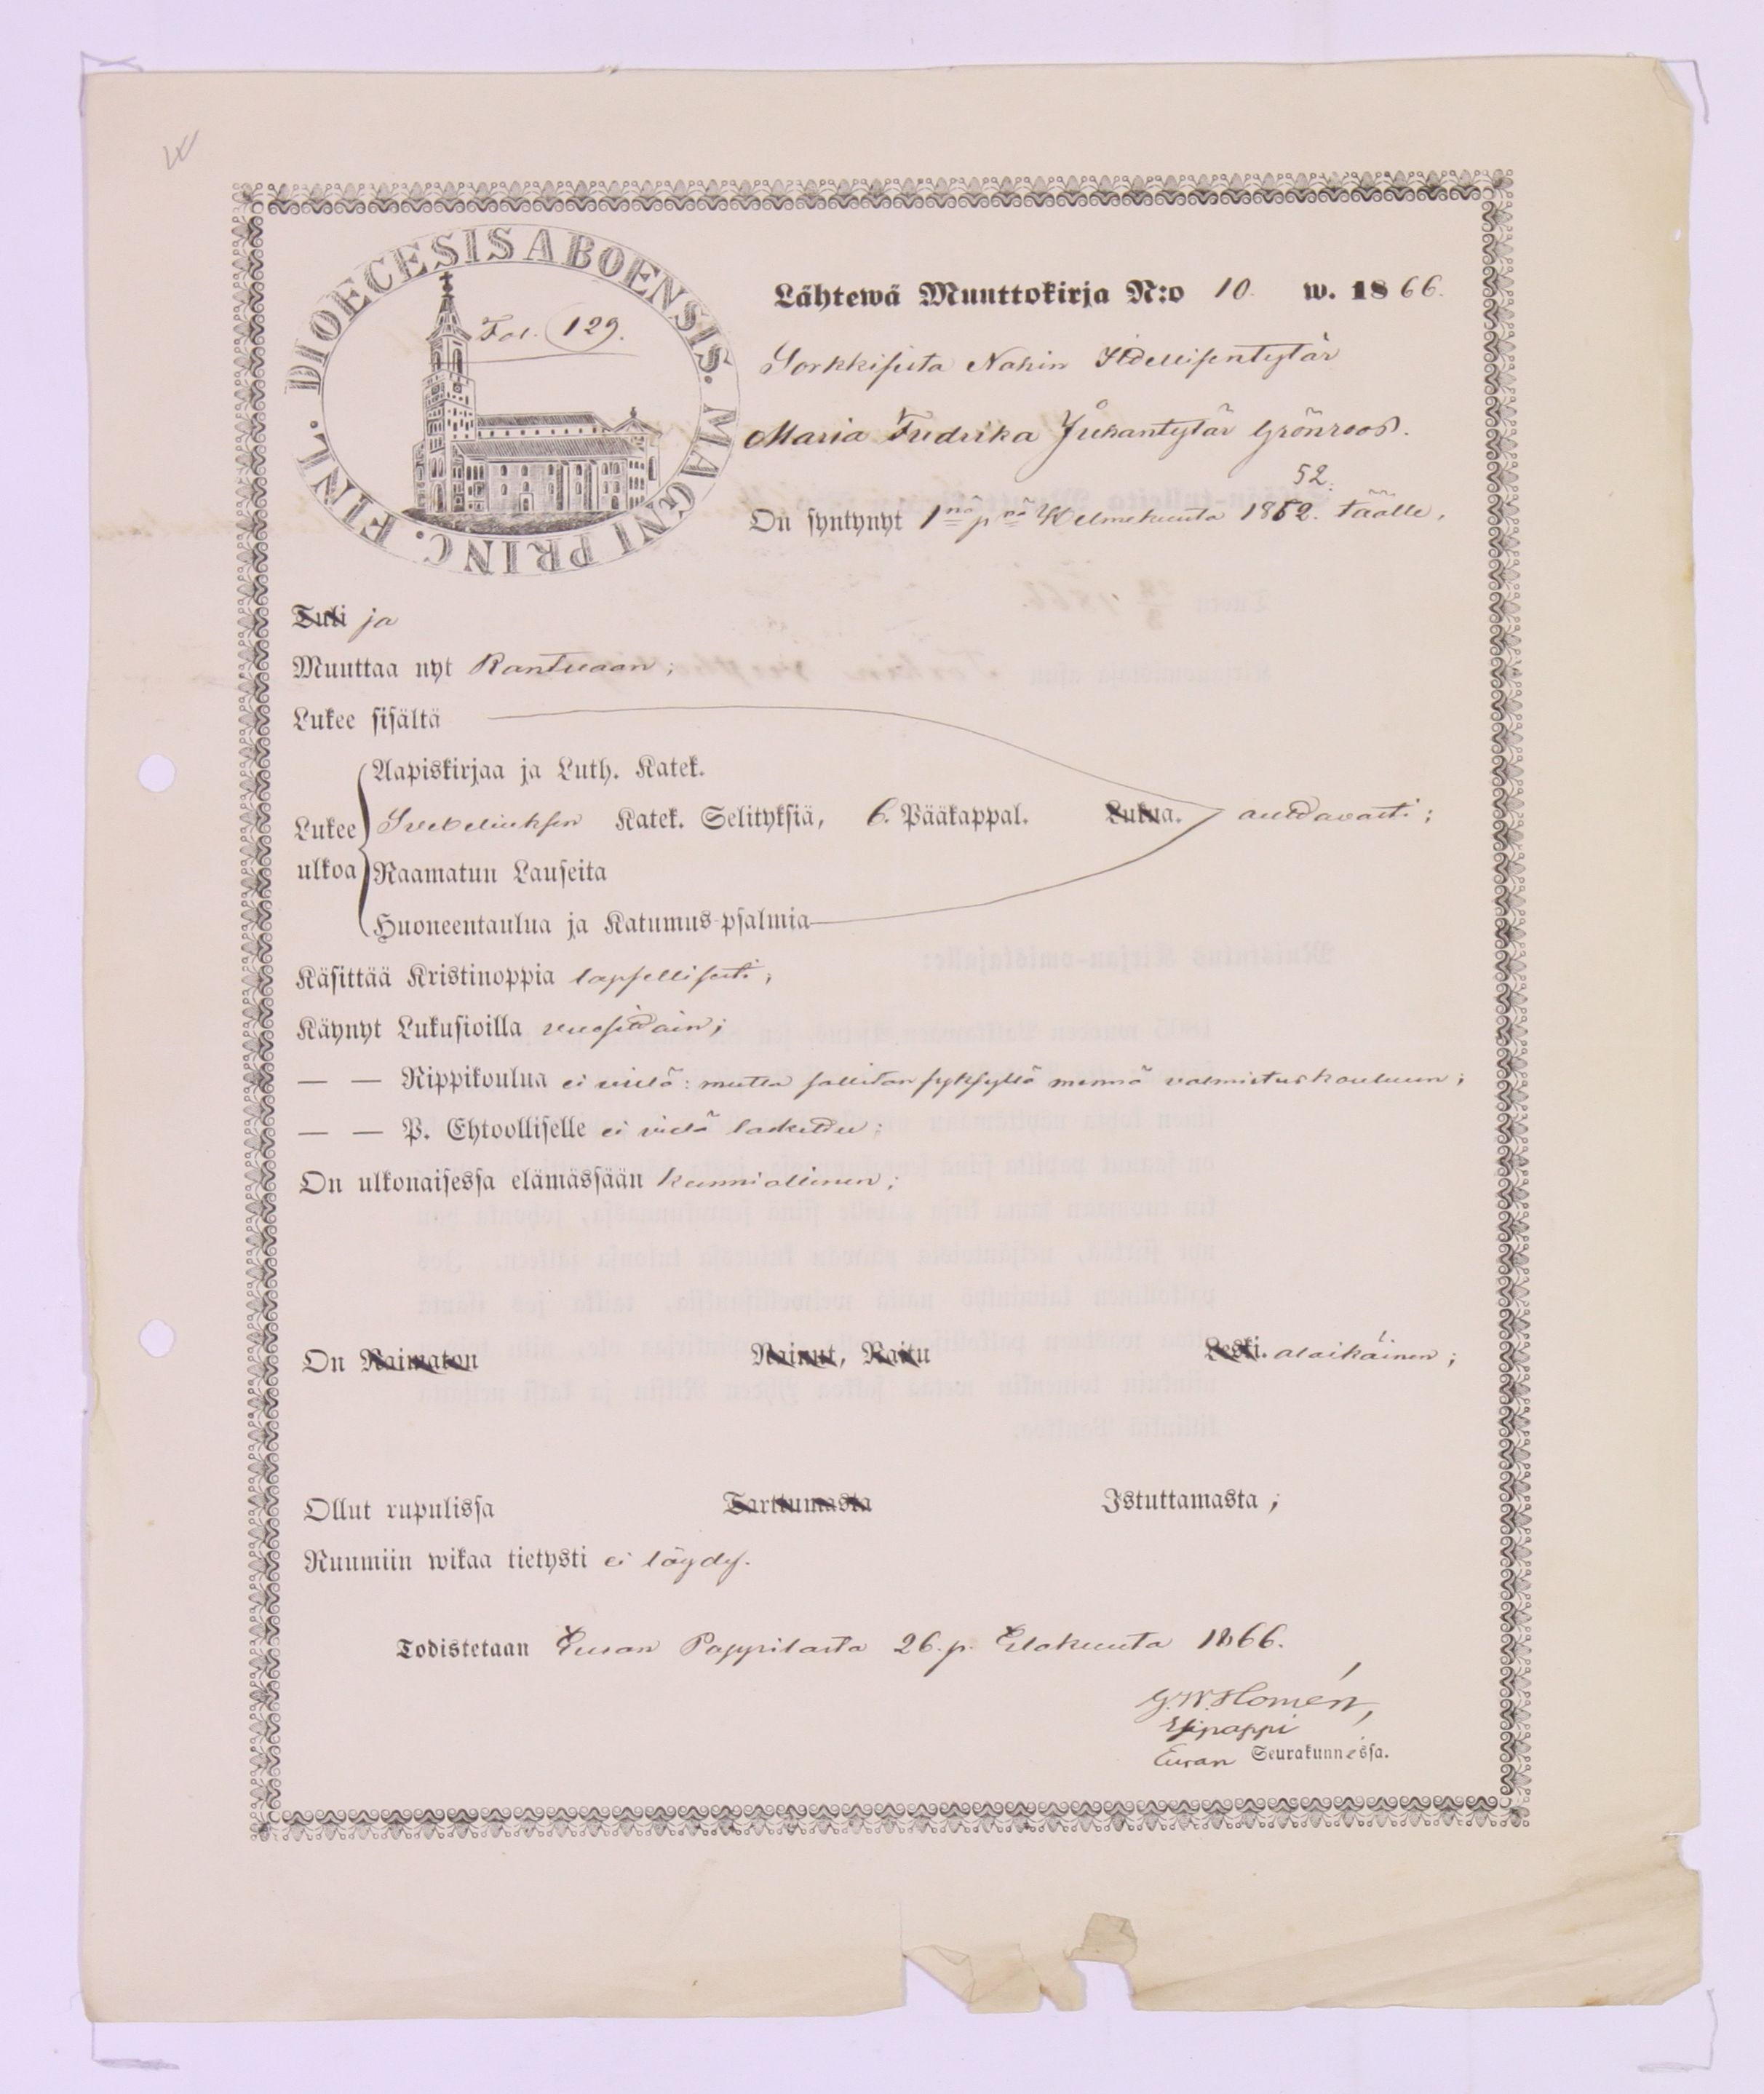 DIOECESIS ABOENSIS. MAGNI PRINC. FINL.
Fol. 129.
Lähtewä Muuttokirja N:o 10. w. 1866.
Sorkkisista Nahin Itsellisentytär
Maria Fredrika Juhantytär Grönroos.
52.
On syntynyt 1nä pnä Helmekuuta 1852. täälle,
Tuli ja
Muuttaa nyt Kantuaan;
Lukee sisältä
Aapiskirjaa ja Luth. Katek.
Lukee ulkoa Svebeliuksen Katek. Selityksiä, 6. Pääkappal. Lukua. auttavasti;
Raamatun Lauseita
Huoneentaulua ja Katumus-psalmia
Käsittää Kristinoppia lapsellisesti;
Käynyt Lukusioilla vuosittain;
— — Rippikoulua ei vielä: mutta sallitan syksyllä mennä valmistuskouluun;
— — P. Ehtoolliselle ei vielä laskettu;
On ulkonaisessa elämässään kunniallinen;
On Naimaton Nainut, Naitu Leski. alaikäinen;
Ollut rupulissa Tarttumasta Istuttamasta;
Ruumiin wikaa tietysti ei löydy.
Todistetaan Euran Pappilasta 26. p. Elokuuta 1866.
G. W. Homén,
Esipappi
Euran Seurakunnassa.